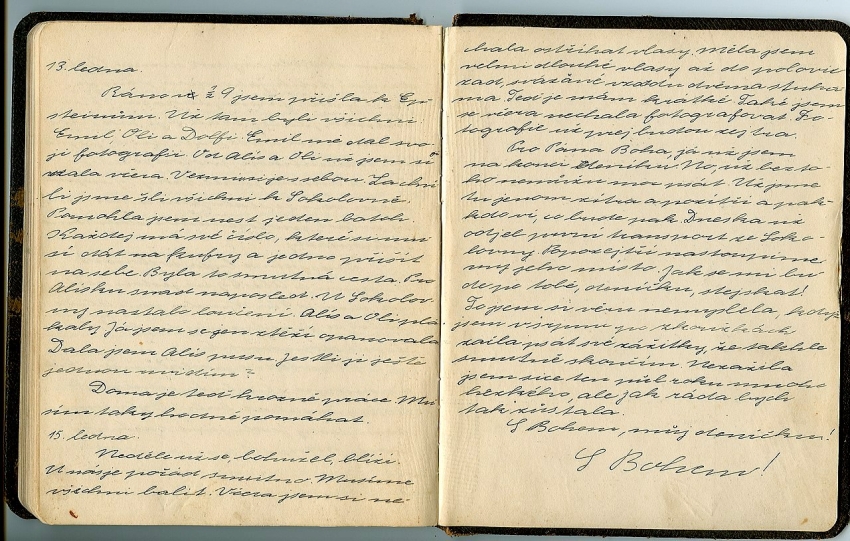 13. ledna.
Ráno v ¾ 9 jsem přišla k Ep-
steinům. Už tam byli všichni
Emil, Oli a Dolfi. Emil mě dal svo-
ji fotografii. Od Alis a Oli už jsem
dostala včera. Vezmu si je sebou. Za chvi-
li jsme šli všichni k Sokolovně.
Pomohla jsem nest jeden batoh.
Každej má své číslo, které si mu-
sí dát na kufry a jedno přišít
na sebe. Byla to smutná cesta. Pro
Alisku snad naposled. U Sokolov-
ny nastalo loučení. Alis a Oli pla-
kaly. Já jsem se jen stěží opanovala.
Dala jsem Alis pusu. Jestli ji ještě
jednou uvidím?
Doma je teď hrozně práce. Mu-
sím taky hodně pomáhat.
15. ledna.
Neděle už se, bohužel, blíží.
U nás je pořád smutno. Musíme
všichni balit. Včera jsem si ne-
chala ostříhat vlasy. Měla jsem
velmi dlouhé vlasy až do polovic
zad, svázané vzadu dvěma stuha-
ma. Teď je mám krátké. Také jsem
se včera nechala fotografovat. Fo-
tografie už prej budou zejtra.
Pro Pána Boha, já už jsem
na konci deníku. No, už bez to-
ho nemůžu moc psát. Už jsme
tu jenom zítra a pozítří a pak-
kdo ví, co bude pak. Dneska už
odjel první transport ze Soko-
lovny. Popozejtří nastoupíme
my jeho místo. Jak se mi bu-
de po tobě, deníčku, stejskat!
To jsem si věru nemyslela, když
jsem v srpnu po zkouškách
začla psát své zážitky, že takhle
smutně skončím. Nezažila
jsem sice ten půl roku mnoho
hezkého, ale jak ráda bych
tak zůstala.
S Bohem, můj deníčku!
S Bohem!